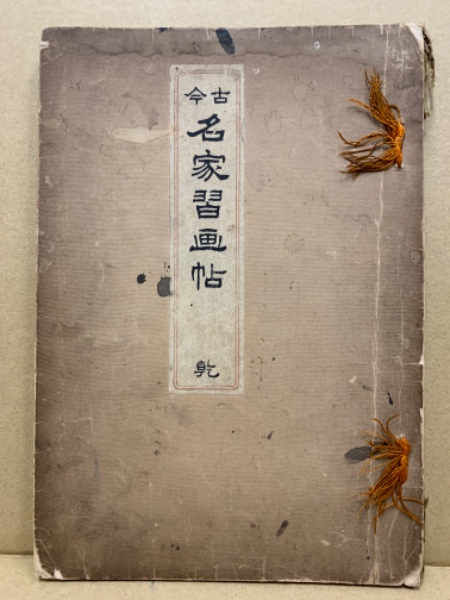 古今
名家習画帖
乾